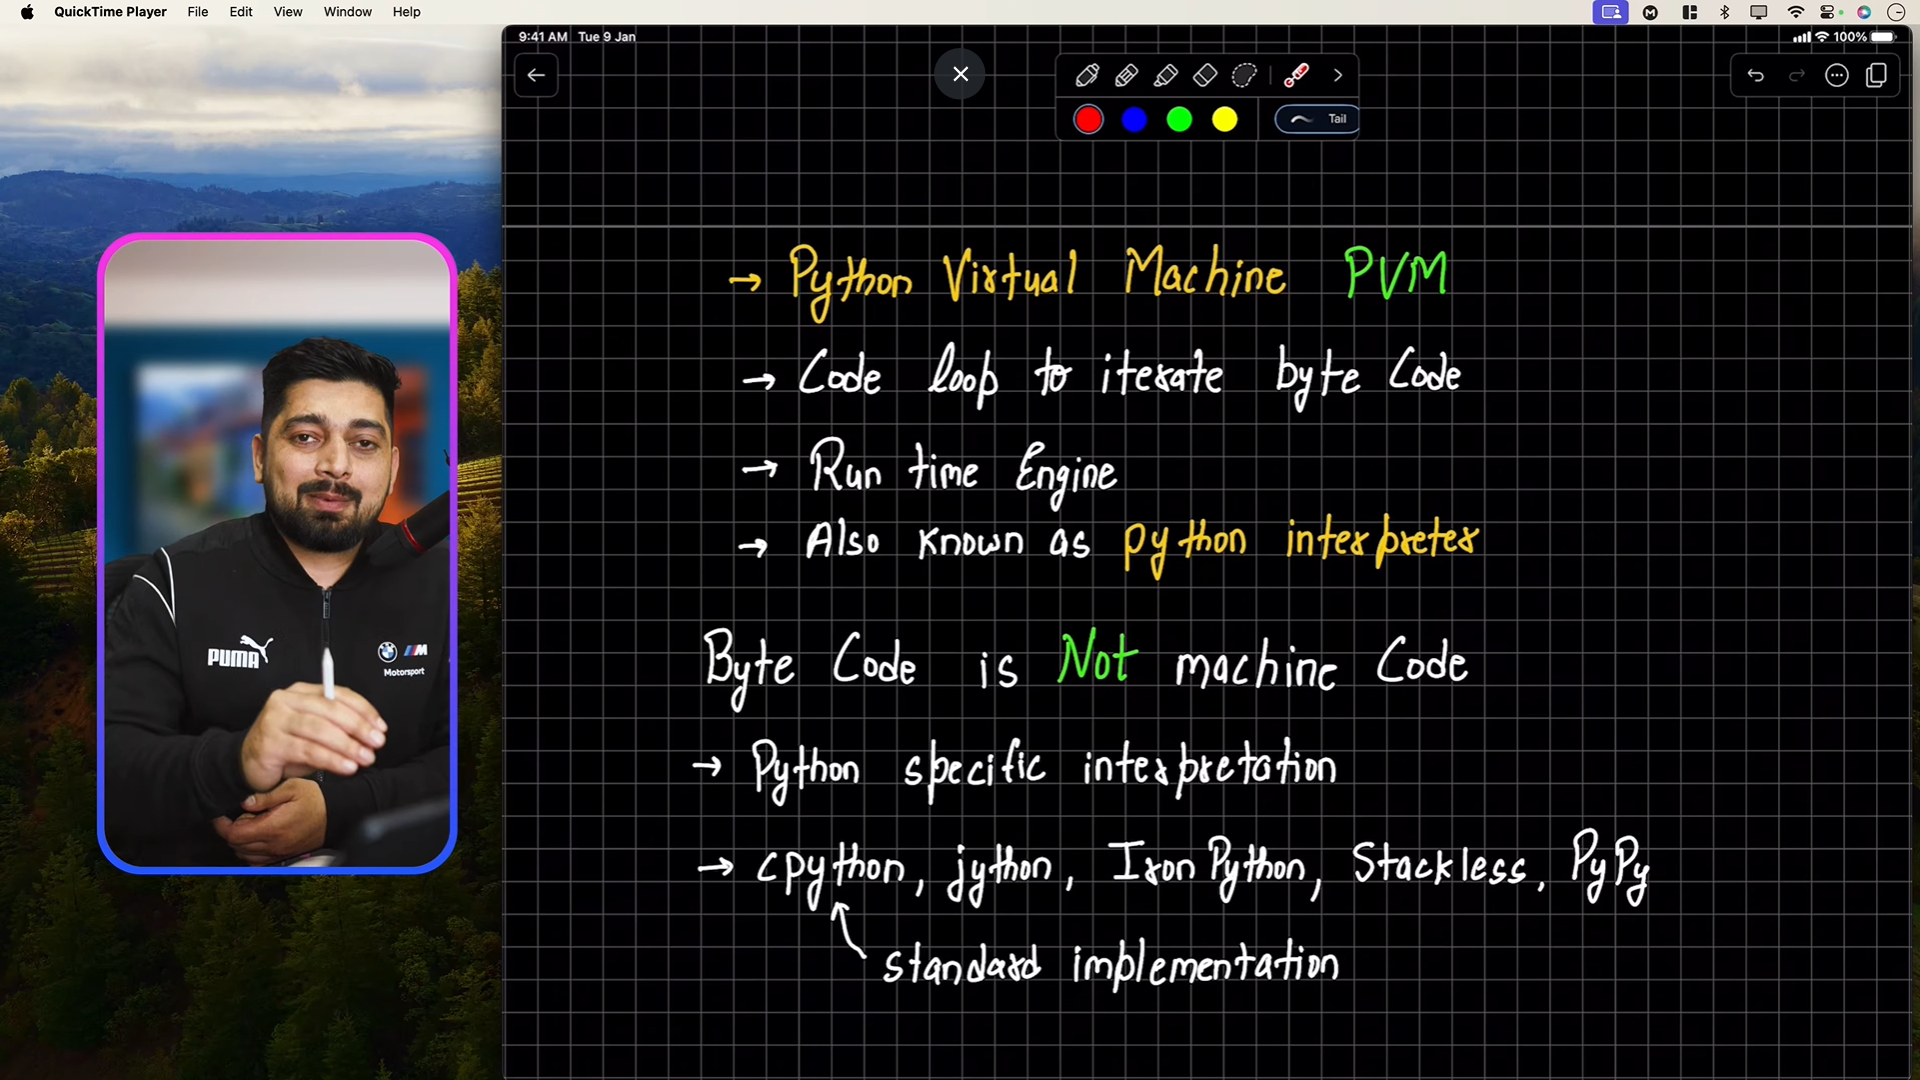 QuickTime Player File Edit View Window Help
9:41 AM Tue 9 Jan 100%
Tail
→ Python Virtual Machine PVM
→ Code loop to iterate byte Code
→ Run time Engine
→ Also known as python interpreter
Byte Code is Not machine Code
→ Python specific interpretation
→ cpython, jython, Iron Python, Stackless, PyPy
standard implementation
PUMA
M
Motorsport